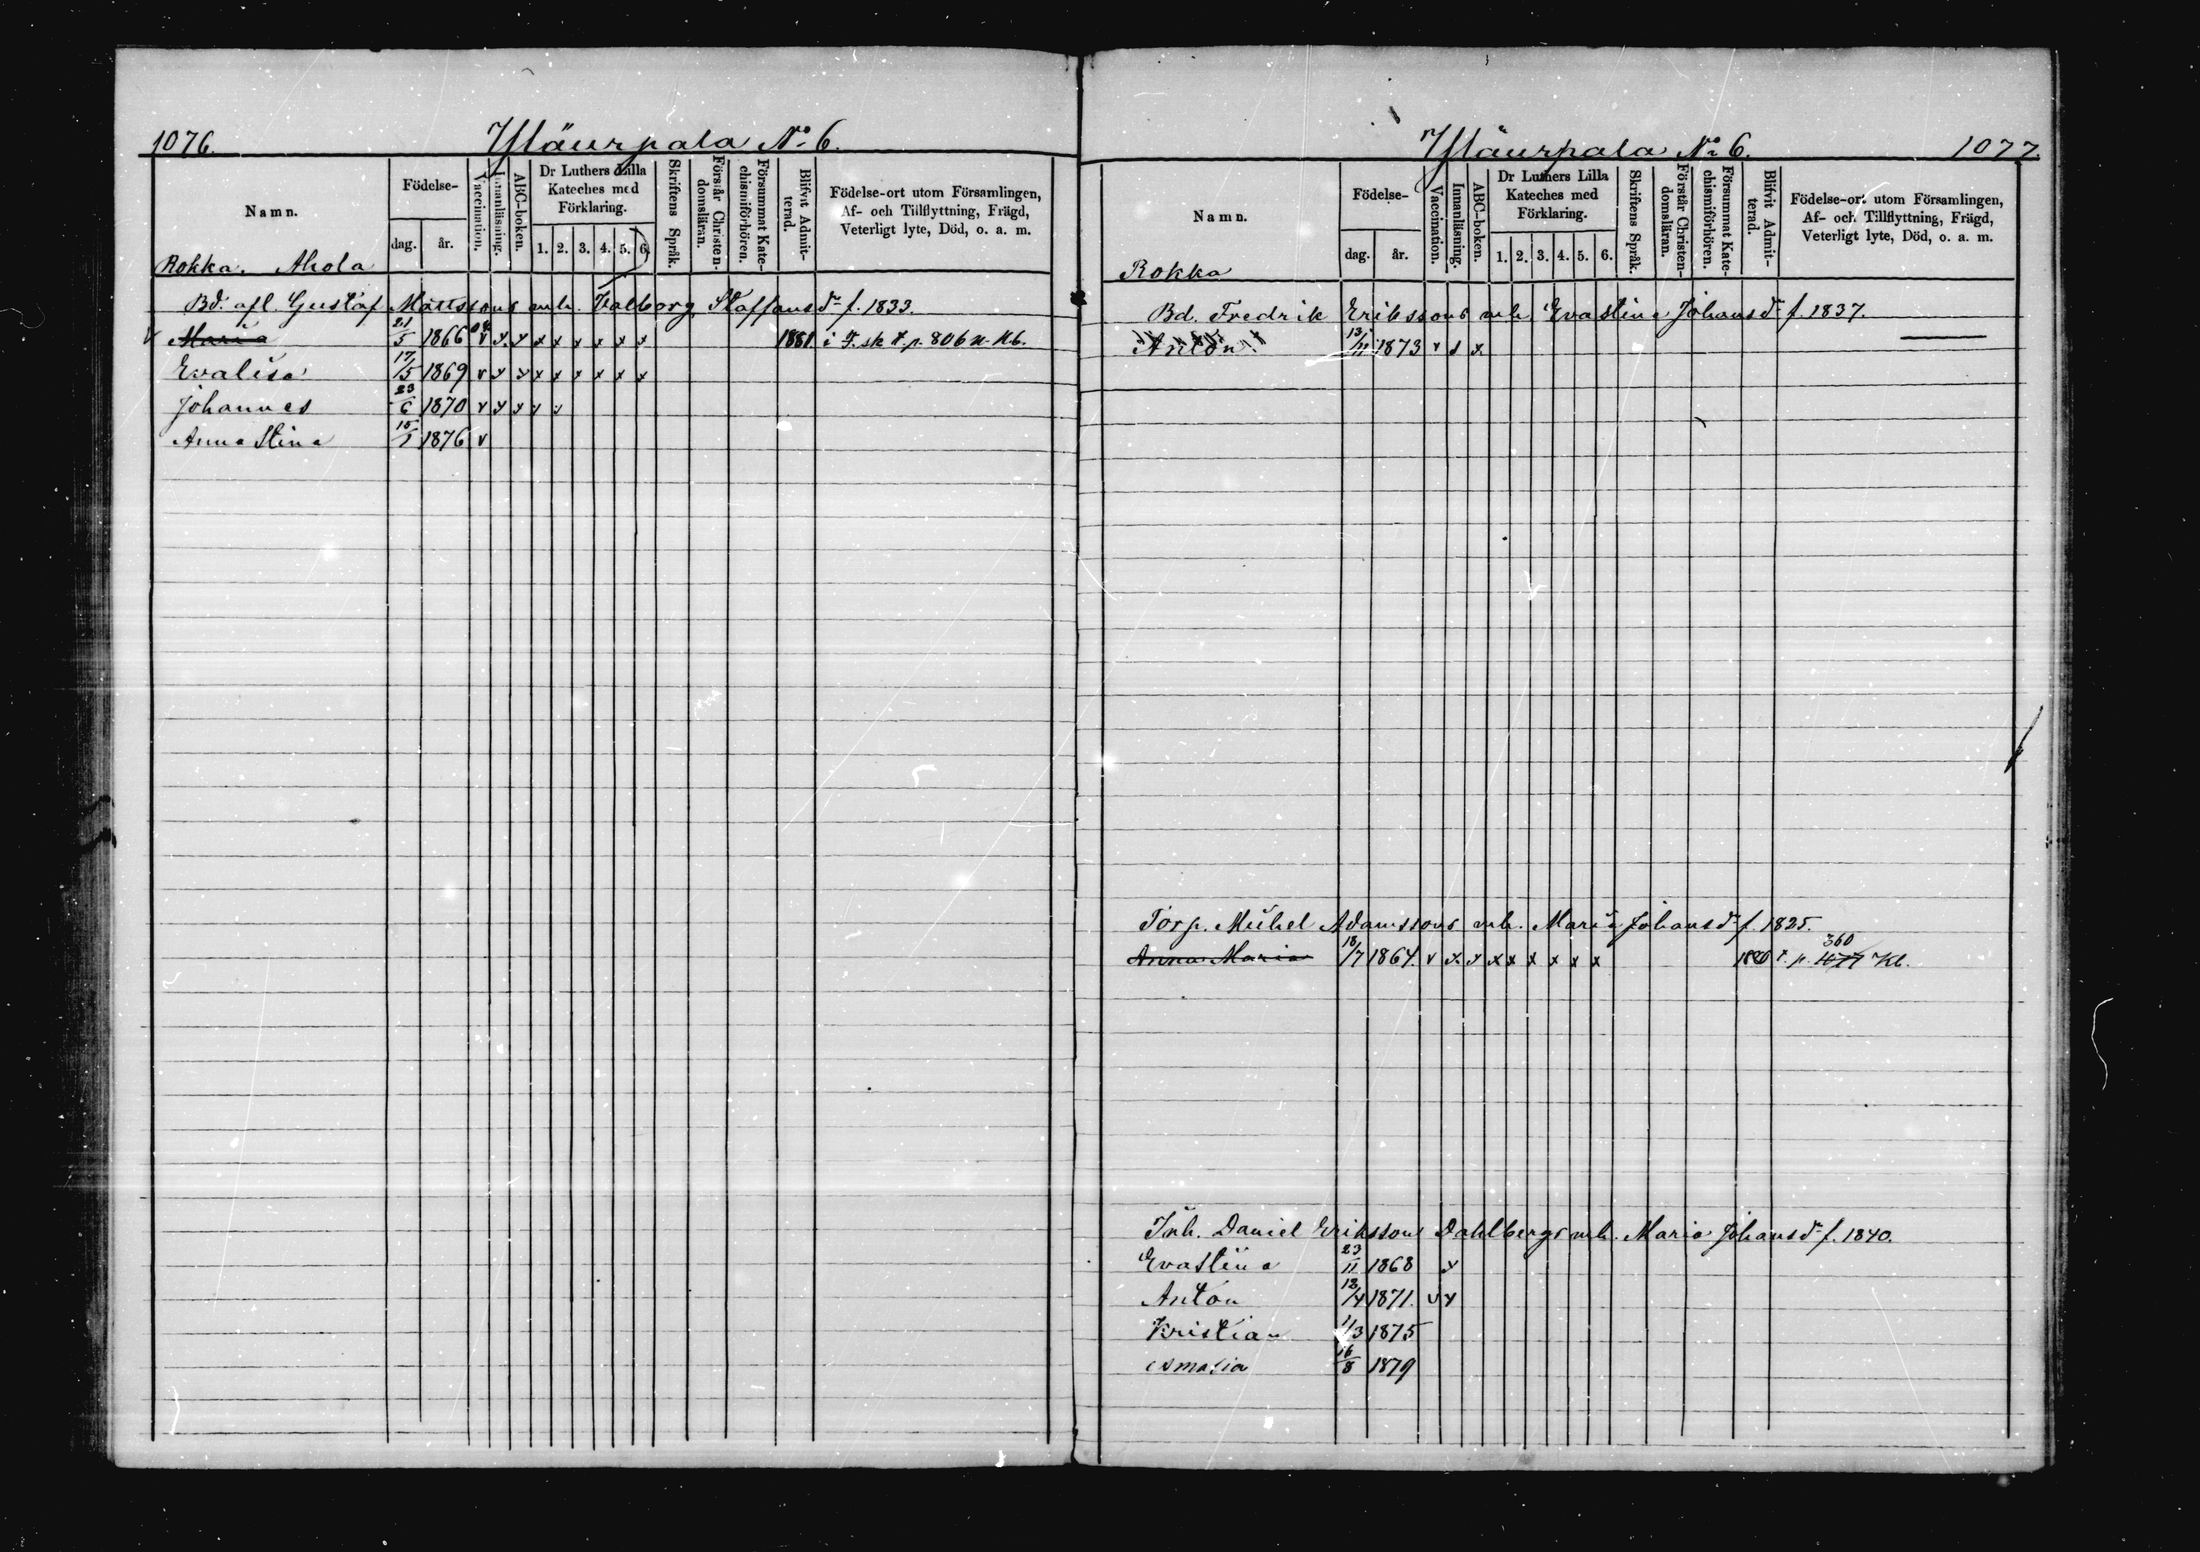 1076. Yläurpala No 6.
Namn.
Födelse-
dag. år.
Vaccination.
Innanläsning.
ABC-boken.
Dr Luthers Lilla Kateches med Förklaring.
1. 2. 3. 4. 5. 6.
Skriftens Språk.
Förstår Christen-domsläran.
Försummat Kate-chismiförhören.
Blifvit Admit-terad.
Födelse-ort utom Församlingen,
Af- och Tillflyttning, Frägd,
Veterligt lyte, Död, o. a. m.
Rokka. Ahola
Bd. afl. Gustaf Mattssons enk. Valborg Staffansdr f. 1833.
v Maria 21/5 1866 v x x x x x x x x 1881 i F. sk t. p. 806 n. Kb.
Evalisa 17/5 1869 v x x x x x x x x
Johannes 23/6 1870 v x x x x
Anna Stina 15/1 1876 v
Yläurpala No 6. 1077.
Namn.
Födelse-
dag. år.
Vaccination.
Innanläsning.
ABC-boken.
Dr Luthers Lilla Kateches med Förklaring.
1. 2. 3. 4. 5. 6.
Skriftens Språk.
Förstår Christen-domsläran.
Försummat Kate-chismiförhören.
Blifvit Admit-terad.
Födelse-ort utom Församlingen,
Af- och Tillflyttning, Frägd,
Veterligt lyte, Död, o. a. m.
Rokka
Bd. Fredrik Erikssons enk Evastina Johansdr f. 1837.
Anton 13/11 1873 v x x
Torp. Mickel Adamssons enk. Maria Johansdr f. 1825.
Anna Maria 18/7 1864. v x x x x x x x x 1880 t. p. 477 360 Kb.
Inh. Daniel Erikssons Dahlbergs enk. Maria Johansdr f. 1840.
Evastina 23/11 1868 x
Anton 12/4 1871. v x
Kristian 1/3 1875
Amalia 16/8 1879